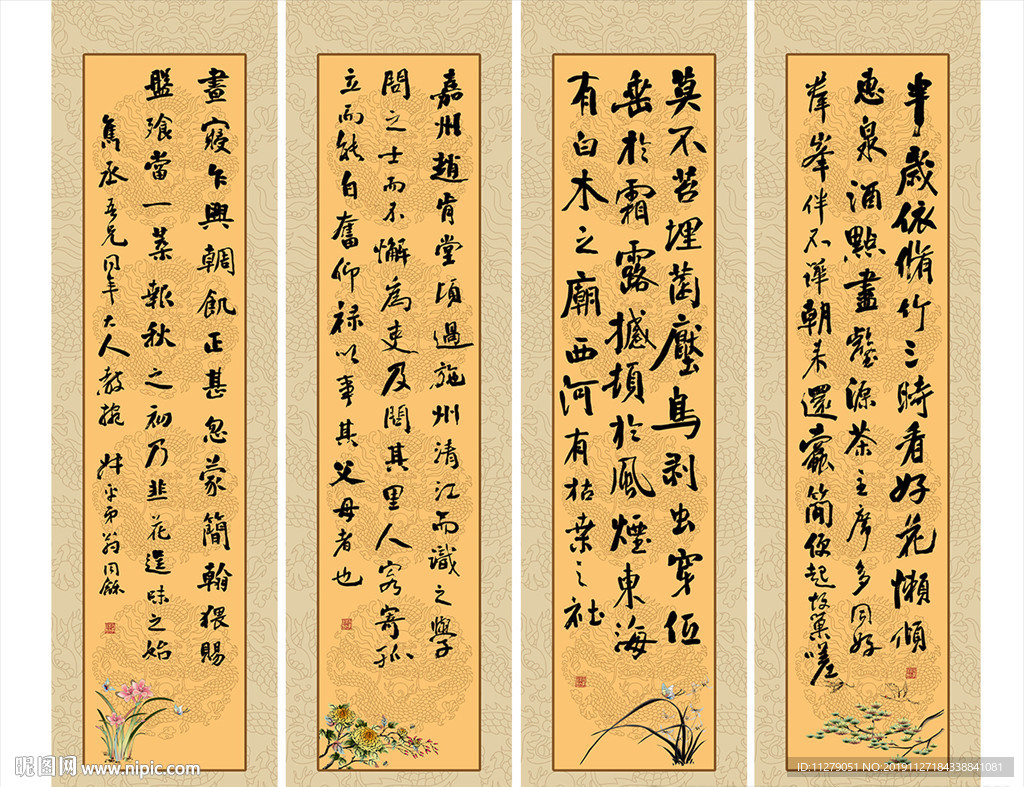 半歲依脩竹三時看好花懶傾
惠泉酒點盡壑源茶主席多同好
羣峯伴不譁朝來還蠹簡便起故巢嗟
莫不苔埋菌壓鳥剥虫穿低
垂於霜露撼頓於風煙東海
有白木之廟西河有枯桑之社
嘉州趙肯堂頃過施州清江而識之學
問之士而不懈為吏及問其里人寄孤
立而能自奮仰祿以事其父母者也
晝寢乍興輖飢正甚忽蒙簡翰猥賜
盤飧當一葉報秋之初乃韭花逞味之始
雋丞吾兄同年大人教掞 叔平弟翁同龢
昵图网 www.nipic.com
ID:11279051 NO:20191127184338841081